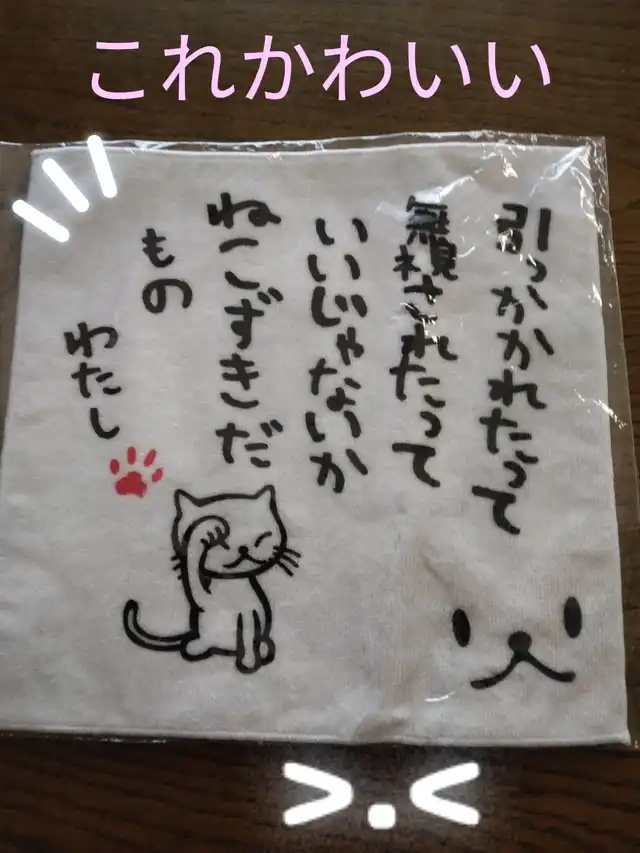 これかわいい
引っかかれたって
無視されたって
いいじゃないか
ねこずきだ
もの
わたし
>.<